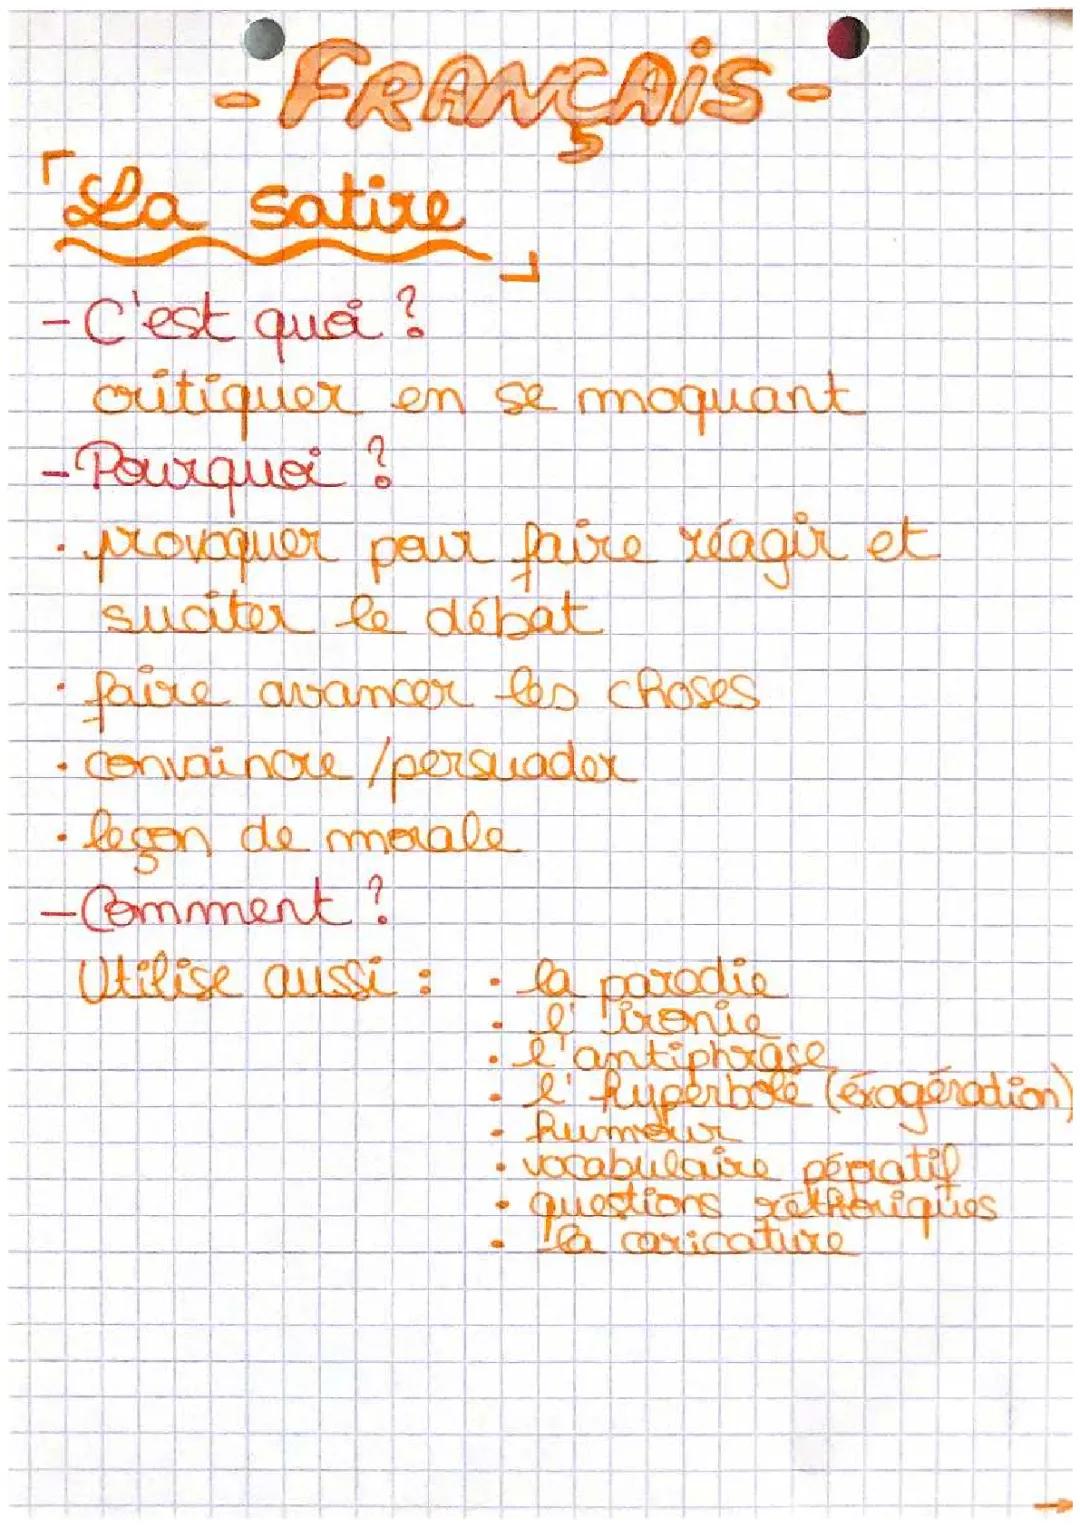 - FRANÇAIS -
「La satire」
- C'est quoi ?
critiquer en se moquant
- Pourquoi ?
· provoquer pour faire réagir et
suciter le débat
· faire avancer les choses
· convaincre / persuader
· leçon de morale
- Comment ?
Utilise aussi : · la parodie
· l'ironie
· l'antiphrase
· l'hyperbole (éxagération)
· humour
· vocabulaire péjratif
· questions réthoriques
· la caricature
→